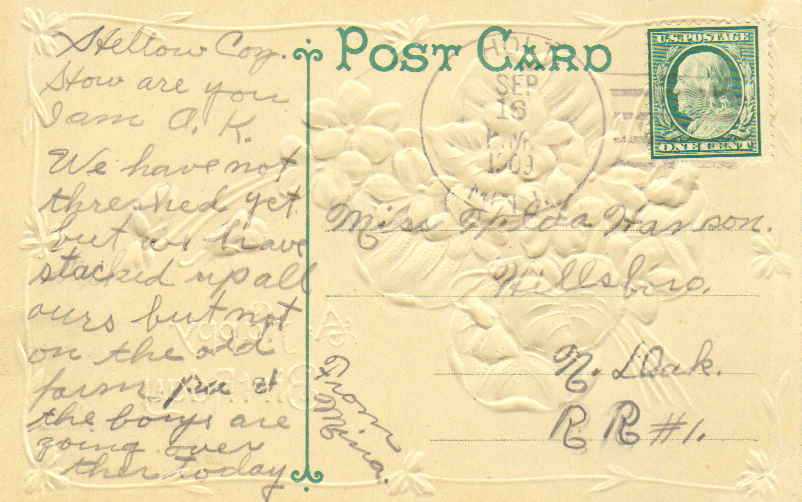 Hellow Coz.
How are you
I am O. K.
We have not
threshed yet
but we have
stacked up all
ours but not
on the old
farm pa &
the boys are
going over
ther today
From
Mina.
POST CARD
HOLT
SEP
16
P.M.
1909
U.S. POSTAGE
ONE CENT
Miss Hilda Hanson.
Hillsboro,
N. Dak.
R R #1.